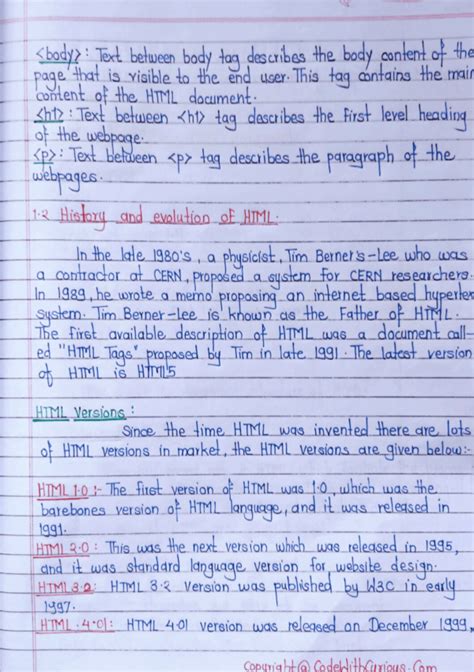 <body>: Text between body tag describes the body content of the
page that is visible to the end user. This tag contains the main
content of the HTML document.
<h1>: Text between <h1> tag describes the first level heading
of the webpage.
<p>: Text between <p> tag describes the paragraph of the
webpages.
1.2 History and evolution of HTML.
In the late 1980's, a physicist, Tim Berner's-Lee who was
a contractor at CERN, proposed a system for CERN researchers.
In 1989, he wrote a memo proposing an internet based hypertex
system. Tim Berner-Lee is known as the Father of HTML.
The first available description of HTML was a document call-
ed "HTML Tags" proposed by Tim in late 1991. The latest version
of HTML is HTML5
HTML Versions:
Since the time HTML was invented there are lots
of HTML versions in market, the HTML versions are given below:-
HTML 1.0:- The first version of HTML was 1.0, which was the
barebones version of HTML language, and it was released in
1991.
HTML 2.0: This was the next version which was released in 1995,
and it was standard language version for website design.
HTML 3.2: HTML 3.2 version was published by W3C in early
1997.
HTML.4.01: HTML 4.01 version was released on December 1999,
Copyright@CodeWithCurious.Com